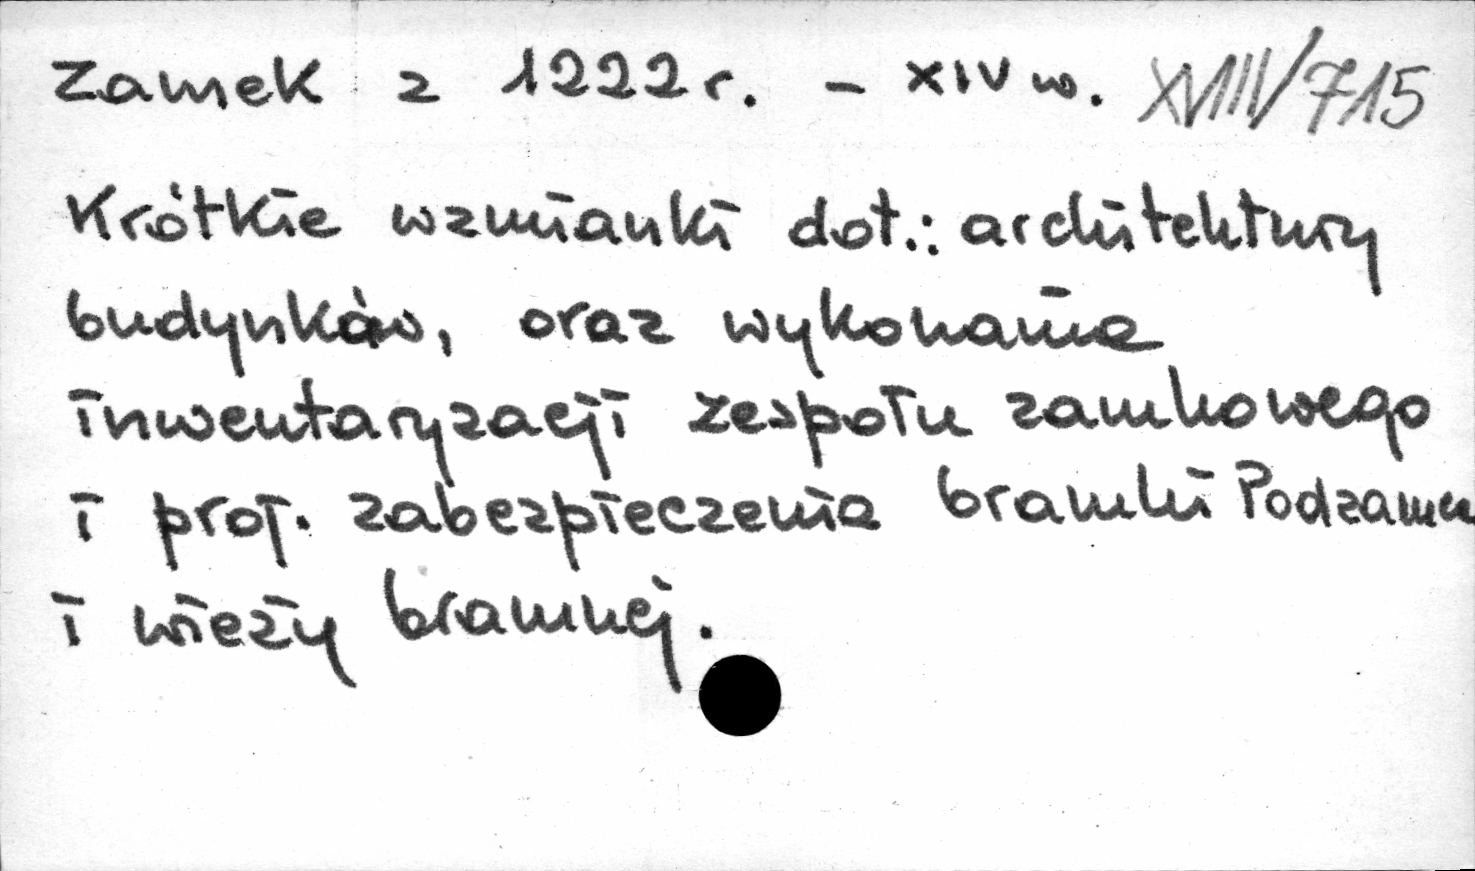 Zamek z 1222 r. – XIV w. XVIII/715
Krótkie wzmianki dot.: architektury
budynków, oraz wykonania
inwentaryzacji zespołu zamkowego
i proj. zabezpieczenia bramki Podzamcu
i wieży bramnej.